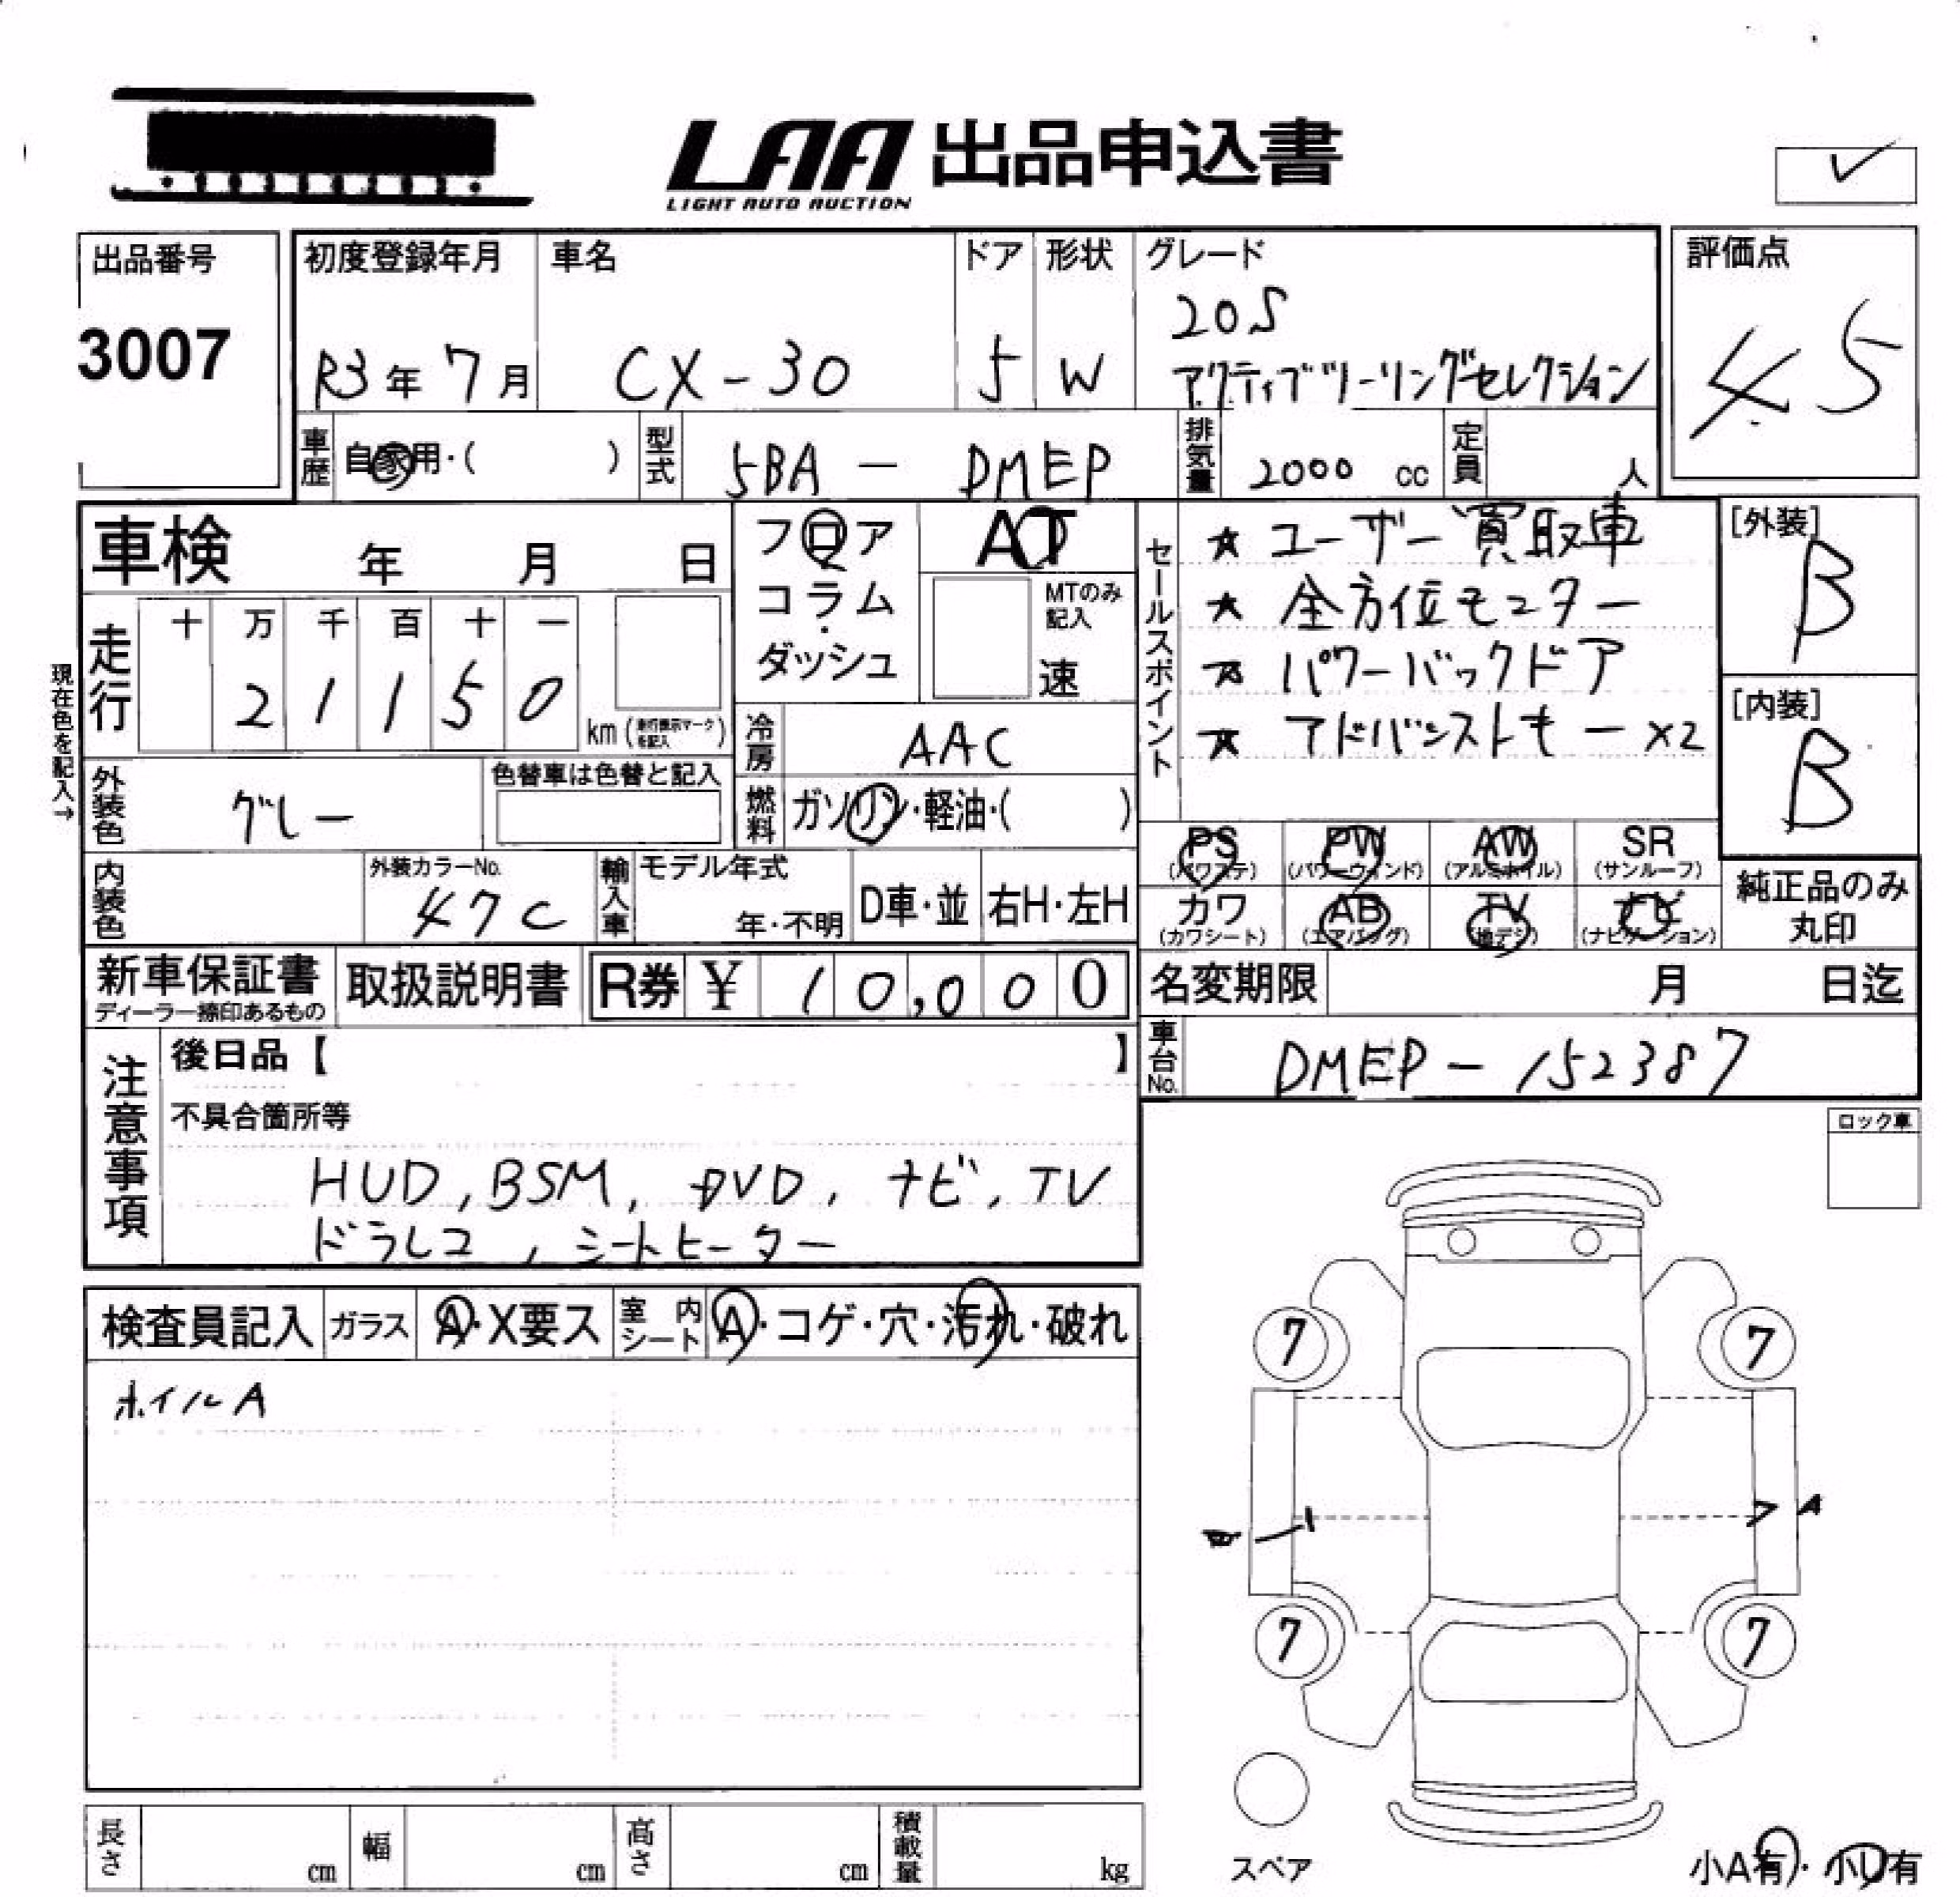 LAA 出品申込書
LIGHT AUTO AUCTION
出品番号
3007
初度登録年月
R3年 7月
車名
CX-30
ドア
5
形状
W
グレード
20S
アクティブツーリングセレクション
評価点
4.5
車歴
自家用・( )
型式
5BA - DMEP
排気量
2000 cc
定員
人
車検 年 月 日
フロア
コラム・
ダッシュ
AT
MTのみ
記入
速
セールスポイント
★ ユーザー買取車
★ 全方位モニター
★ パワーバックドア
★ アドバンストキー×2
[外装]
B
[内装]
B
現在色を記入→
走行
十 万 千 百 十 一
2 1 1 5 0
km (走行表示マークを記入)
冷房
AAC
燃料
ガソリン・軽油・( )
外装色
グレー
色替車は色替と記入
内装色
外装カラーNo.
47C
輸入車
モデル年式
年・不明
D車・並
右H・左H
PS PW AW SR
(パワステ) (パワーウィンド) (アルミホイル) (サンルーフ)
カワ AB TV ナビ
(カワシート) (エアバッグ) (地デジ) (ナビゲーション)
純正品のみ
丸印
新車保証書
ディーラー捺印あるもの
取扱説明書
R券 ¥ 10,000
名変期限 月 日迄
車台No.
DMEP - 152387
注意事項
後日品【 】
不具合箇所等
HUD, BSM, DVD, ナビ, TV
ドラレコ, シートヒーター
ロック車
検査員記入
ガラス
A・X要ス
室内シート
A・コゲ・穴・汚れ・破れ
ホイルA
7 7
A
7 7
スペア
長さ cm
幅 cm
高さ cm
積載量 kg
小A有・小U有